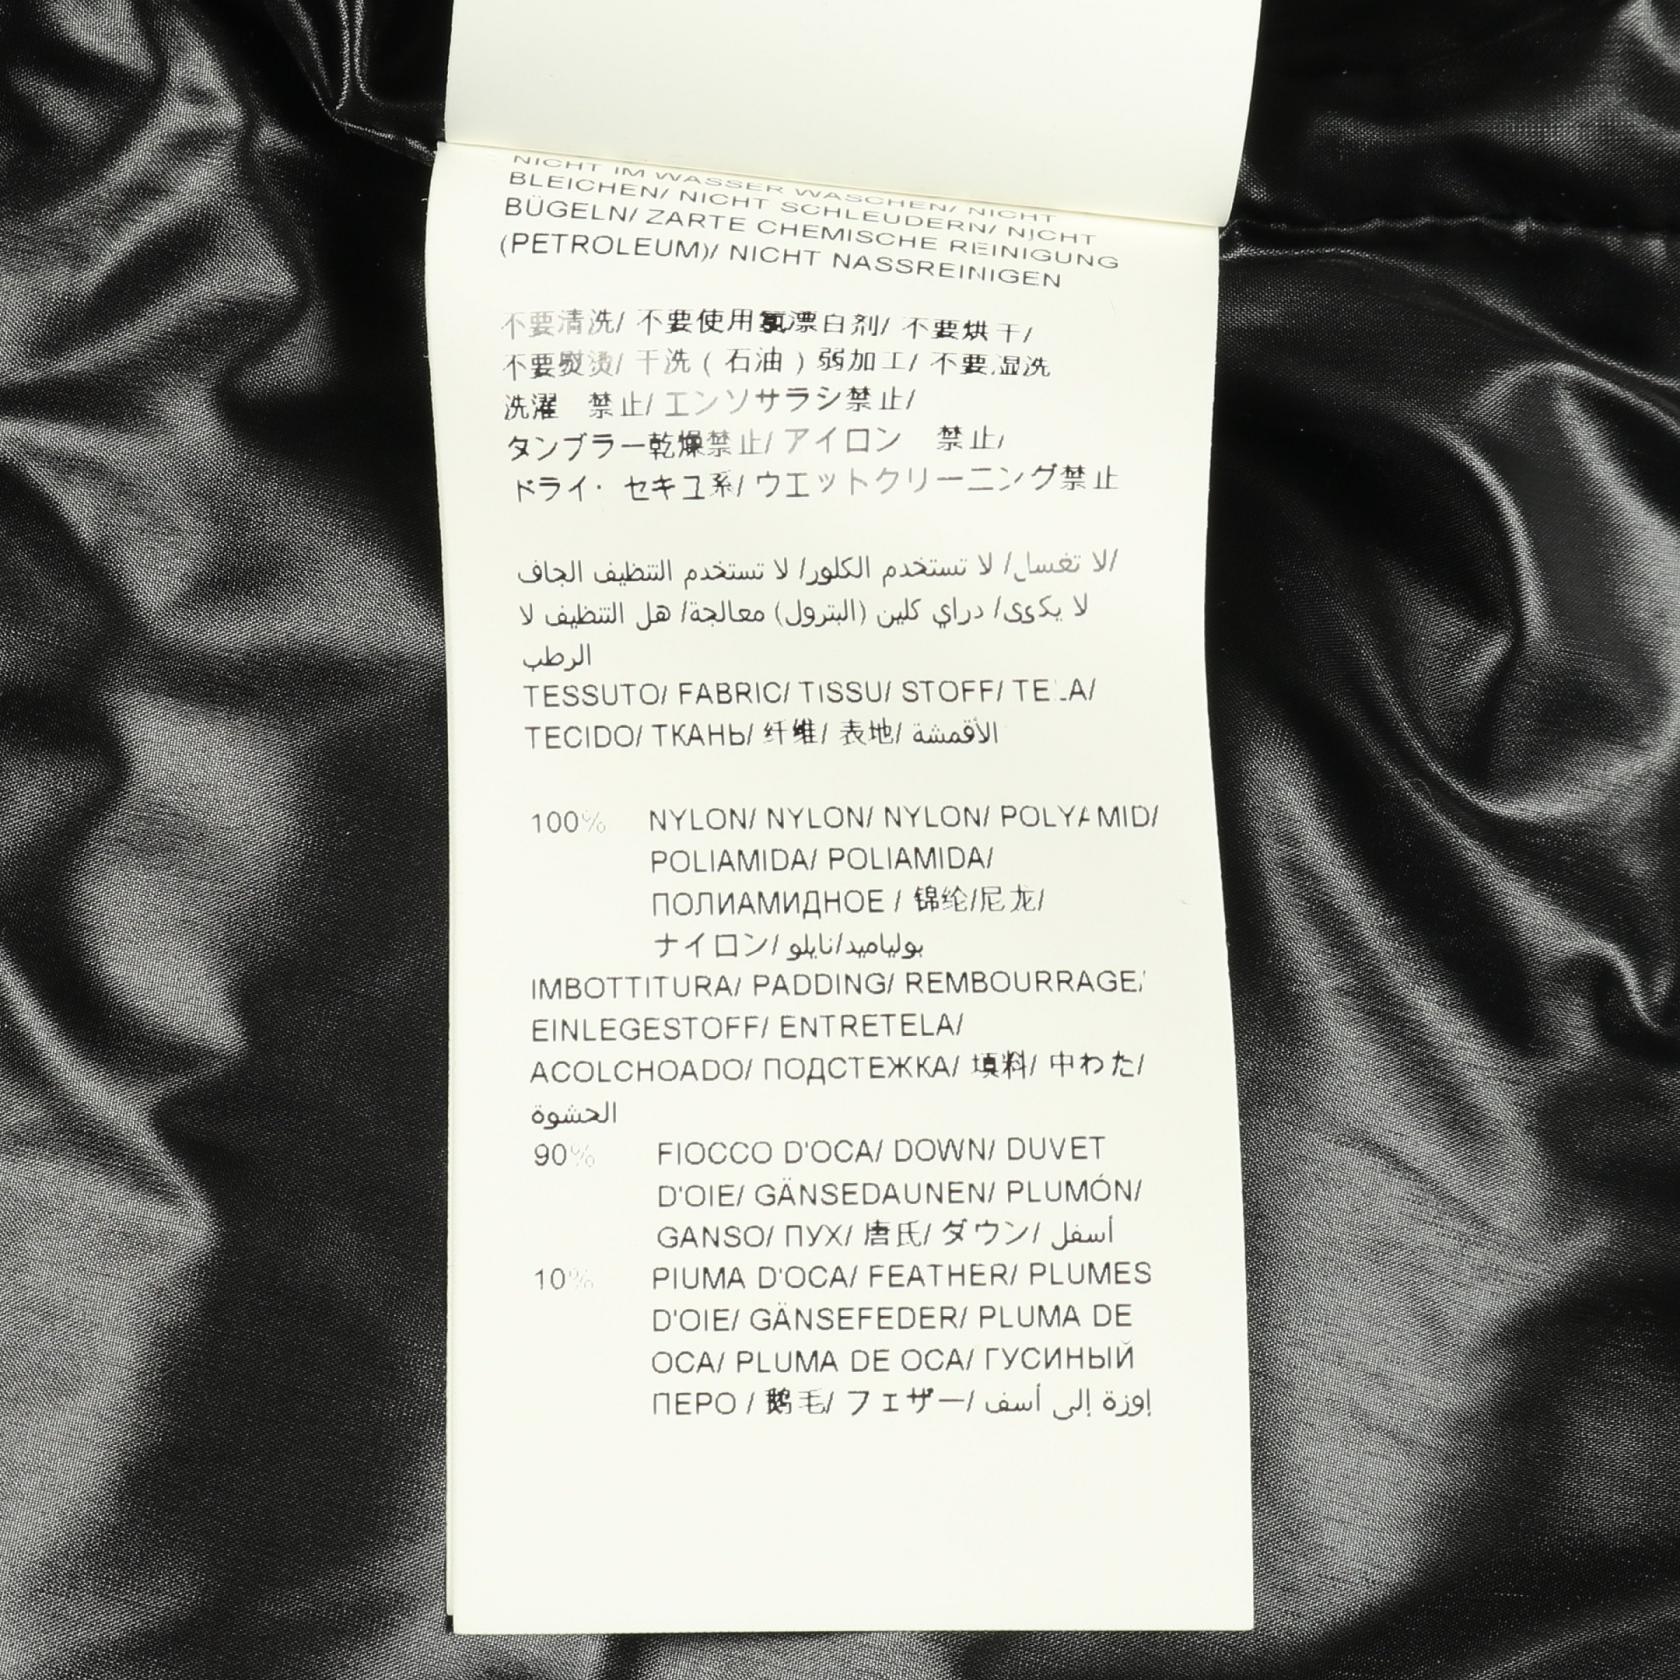 NICHT IM WASSER WASCHEN/ NICHT
BLEICHEN/ NICHT SCHLEUDERN/ NICHT
BÜGELN/ ZARTE CHEMISCHE REINIGUNG
(PETROLEUM)/ NICHT NASSREINIGEN
不要清洗/ 不要使用氯漂白剂/ 不要烘干/
不要熨烫/ 干洗 ( 石油 ) 弱加工/ 不要湿洗
洗濯 禁止/ エンソサラシ禁止/
タンブラー乾燥禁止/ アイロン 禁止/
ドライ· セキユ系/ ウエットクリーニング禁止
لا تغسل/ لا تستخدم الكلور/ لا تستخدم التنظيف الجاف/
لا يكوى/ دراي كلين (البترول) معالجة/ هل التنظيف لا
الرطب
TESSUTO/ FABRIC/ TISSU/ STOFF/ TELA/
TECIDO/ ТКАНЬ/ 纤维/ 表地/ الأقمشة
100% NYLON/ NYLON/ NYLON/ POLYAMID/
POLIAMIDA/ POLIAMIDA/
ПОЛИАМИДНОЕ / 锦纶/尼龙/
ナイロン/ بولياميد/نايلو
IMBOTTITURA/ PADDING/ REMBOURRAGE/
EINLEGESTOFF/ ENTRETELA/
ACOLCHOADO/ ПОДСТЕЖКА/ 填料/ 中わた/
الحشوة
90% FIOCCO D'OCA/ DOWN/ DUVET
D'OIE/ GÄNSEDAUNEN/ PLUMÓN/
GANSO/ ПУХ/ 唐氏/ ダウン/ أسفل
10% PIUMA D'OCA/ FEATHER/ PLUMES
D'OIE/ GÄNSEFEDER/ PLUMA DE
OCA/ PLUMA DE OCA/ ГУСИНЫЙ
ПЕРО / 鹅毛/ フェザー/ إوزة إلى أسف